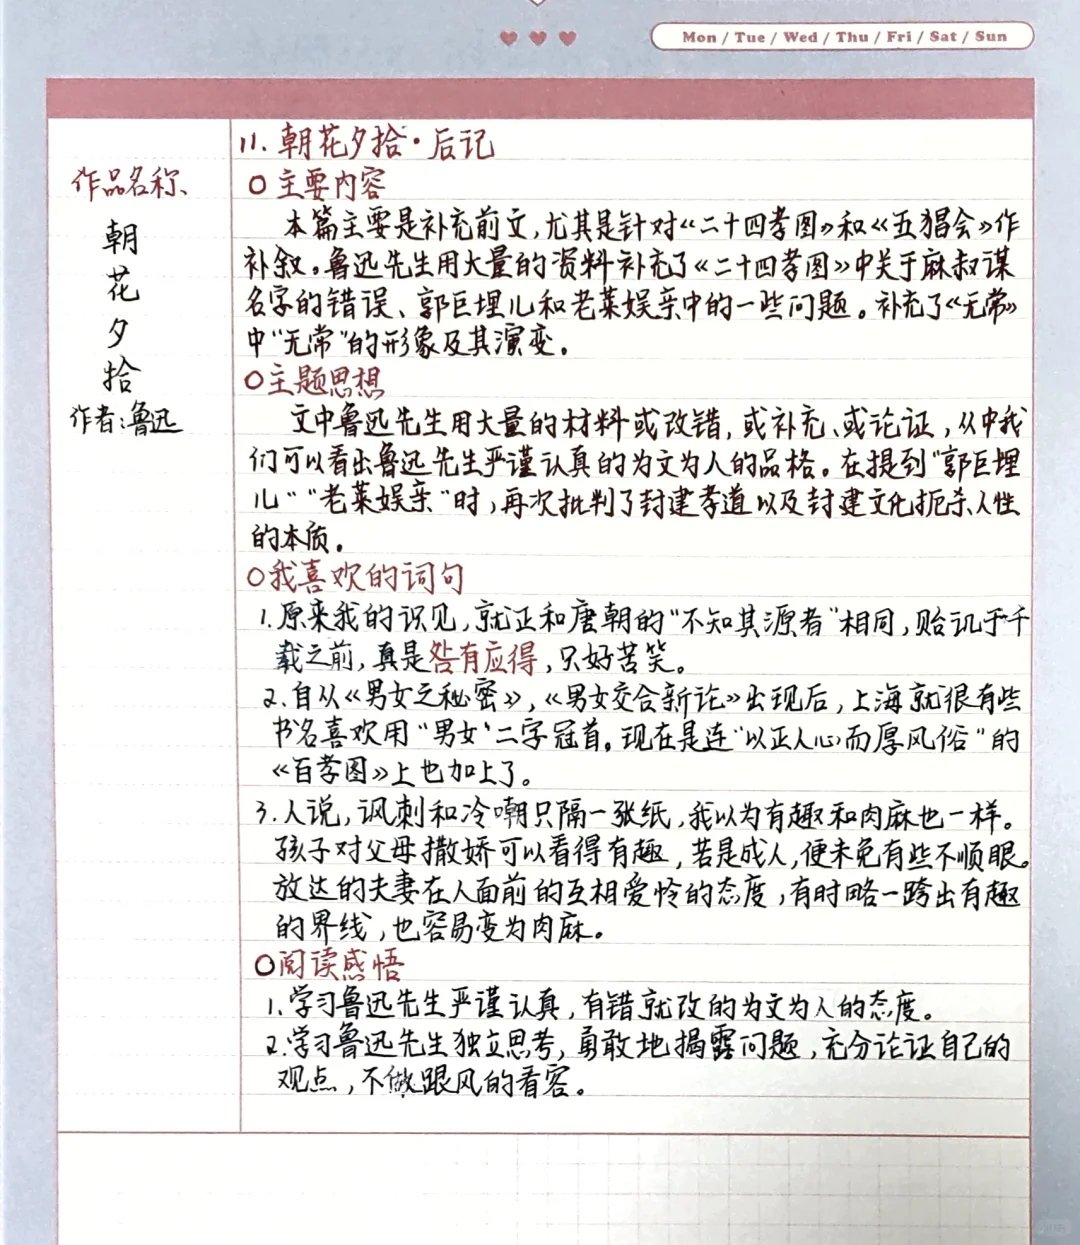 Mon / Tue / Wed / Thu / Fri / Sat / Sun
作品名称、
朝
花
夕
拾
作者:鲁迅
11. 朝花夕拾·后记
○ 主要内容
本篇主要是补充前文,尤其是针对《二十四孝图》和《五猖会》作
补叙。鲁迅先生用大量的资料补充了《二十四孝图》中关于麻叔谋
名字的错误、郭巨埋儿和老莱娱亲中的一些问题。补充了《无常》
中“无常”的形象及其演变。
○主题思想
文中鲁迅先生用大量的材料或改错,或补充、或论证,从中我
们可以看出鲁迅先生严谨认真的为文为人的品格。在提到“郭巨埋
儿”“老莱娱亲”时,再次批判了封建孝道以及封建文化扼杀人性
的本质。
○我喜欢的词句
1.原来我的识见,就正和唐朝的“不知其源者”相同,贻讥于千
载之前,真是咎有应得,只好苦笑。
2.自从《男女之秘密》,《男女交合新论》出现后,上海就很有些
书名喜欢用“男女”二字冠首。现在是连“以正人心而厚风俗”的
《百孝图》上也加上了。
3.人说,讽刺和冷嘲只隔一张纸,我以为有趣和肉麻也一样。
孩子对父母撒娇可以看得有趣,若是成人,便未免有些不顺眼。
放达的夫妻在人面前的互相爱怜的态度,有时略一跨出有趣
的界线,也容易变为肉麻。
○阅读感悟
1.学习鲁迅先生严谨认真,有错就改的为文为人的态度。
2.学习鲁迅先生独立思考,勇敢地揭露问题,充分论证自己的
观点,不做跟风的看客。